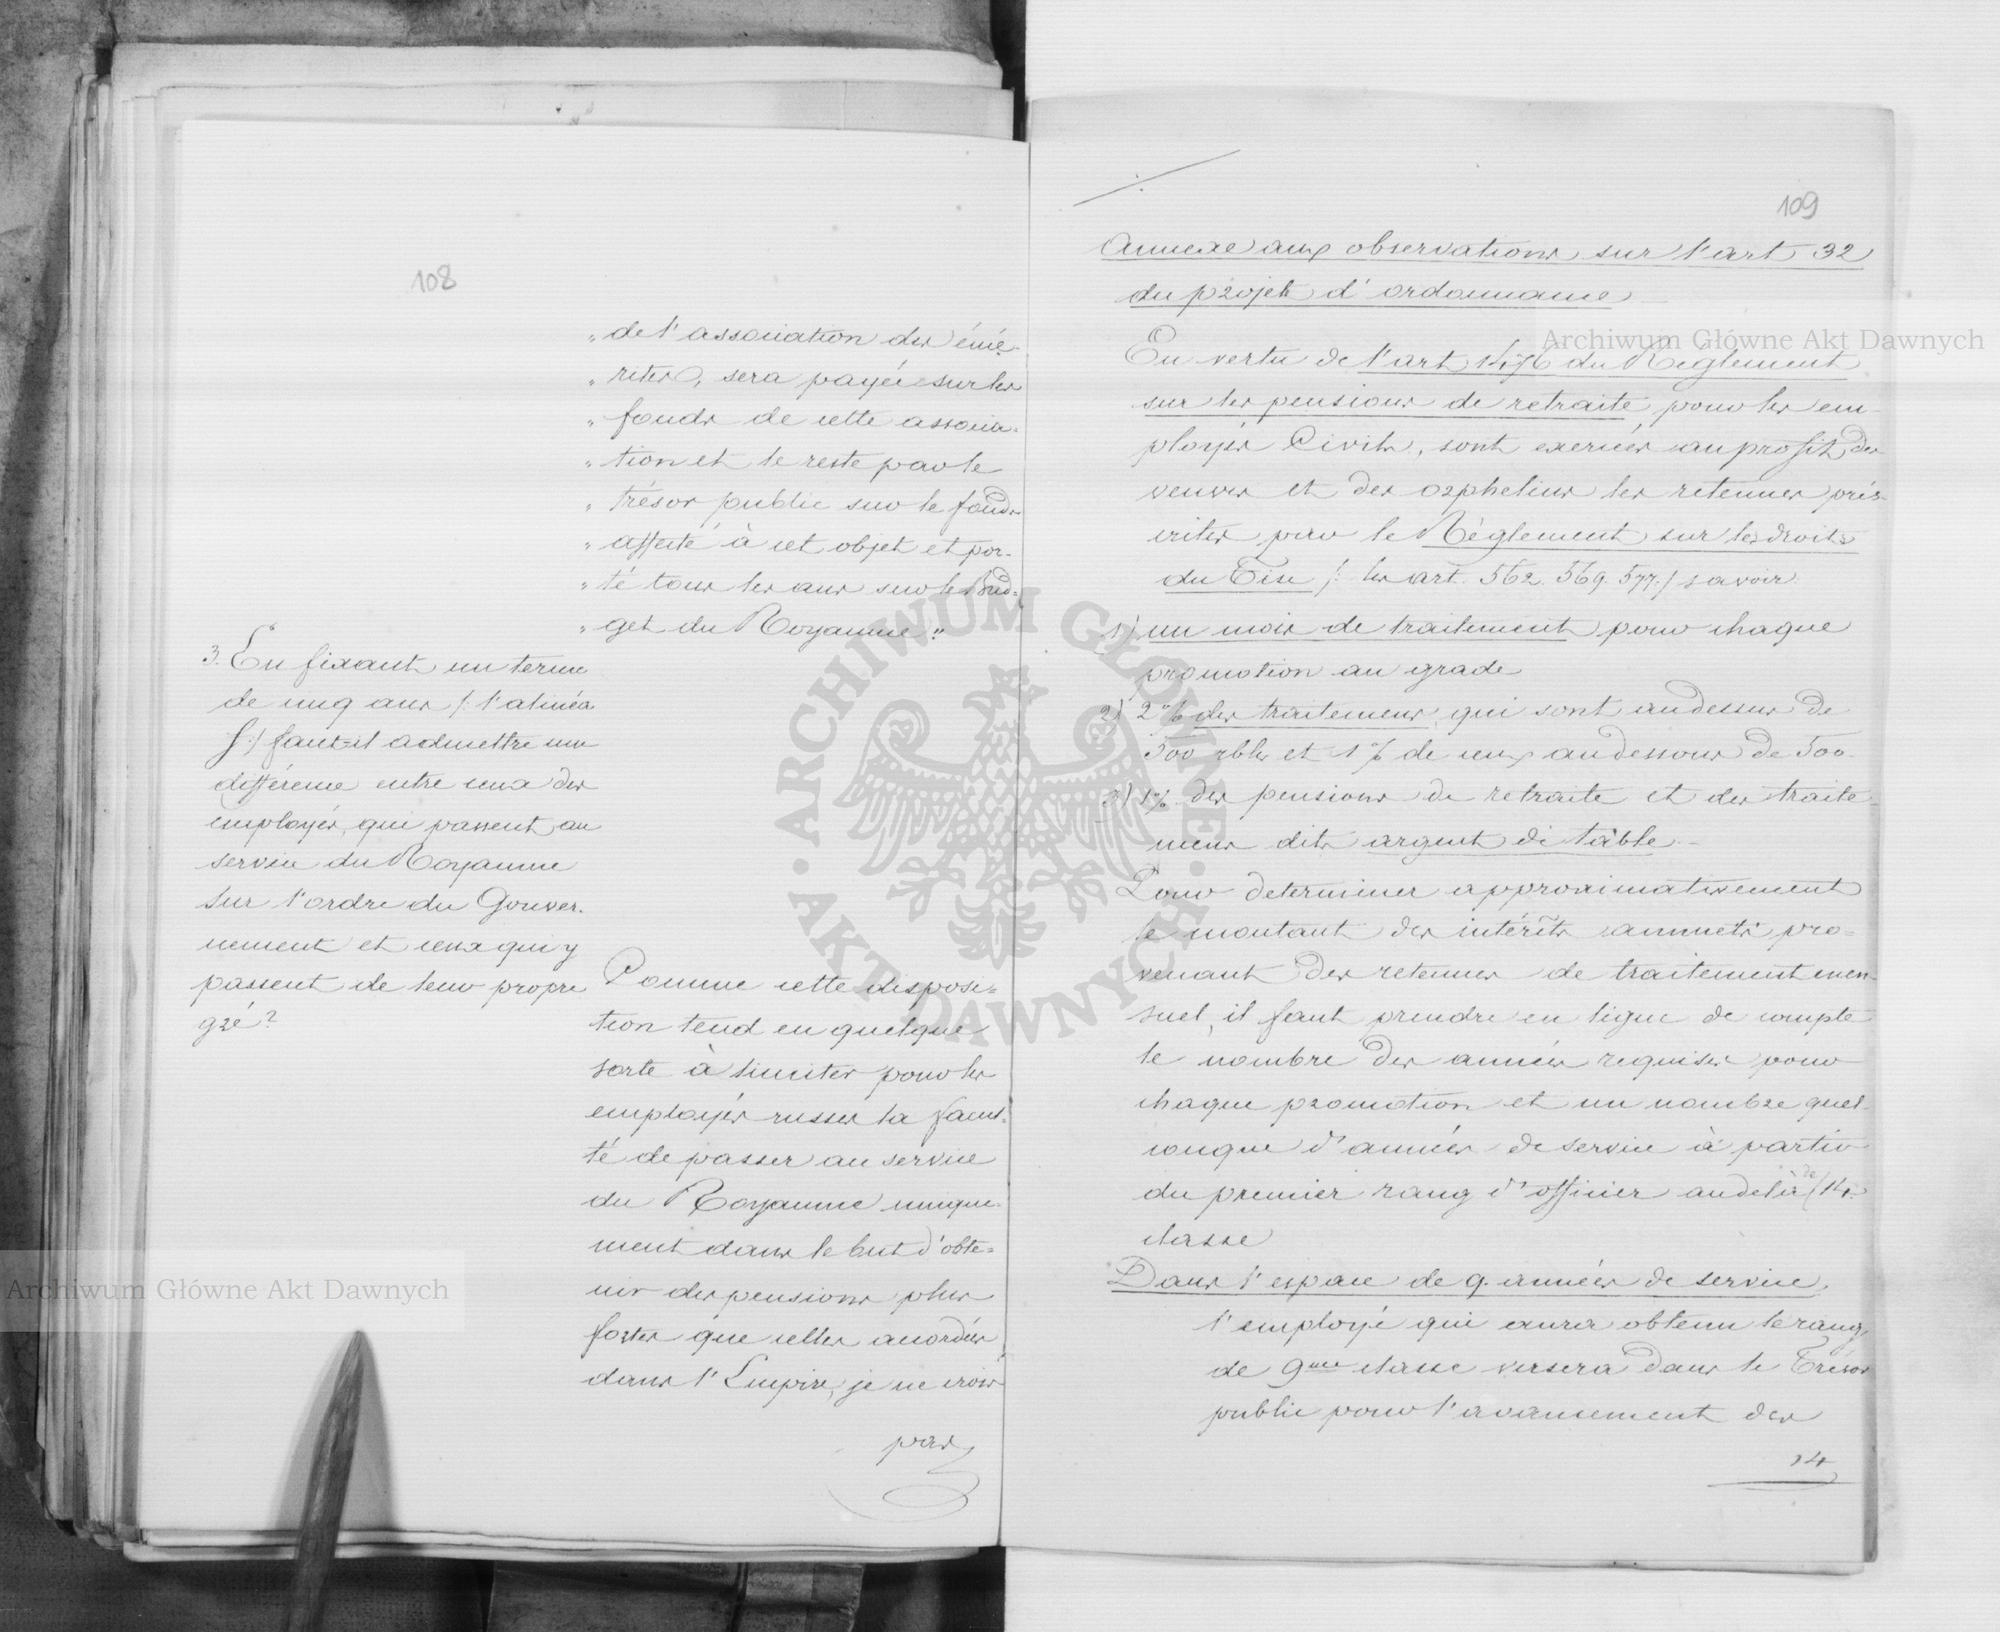 108
„ de l'association des émé-
„ rites, sera payée sur les
„ fonds de cette associa-
„ tion et le reste par le
„ trésor public sur le fonds
„ affecté à cet objet et por-
„ té tous les ans sur le Bud-
„ get du Royaume."
3. En fixant un terme
de cinq ans /: l'alinéa
f :/ faut-il admettre une
différence entre ceux des
employés, qui passent au
service du Royaume
sur l'ordre du Gouver-
nement et ceux qui y
passent de leur propre
gré?
Comme cette disposi-
tion tend en quelque
sorte à limiter pour les
employés russes la facul-
té de passer au service
du Royaume unique-
ment dans le but d'obte-
nir des pensions plus
fortes que celles accordées
dans l'Empire, je ne crois
pas
109
Annexe aux observations sur l'art 32
du projet d'ordonnance
En vertu de l'art 1476 du Règlement
sur les pensions de retraite pour les em-
ployés Civils, sont exercées au profit des
veuves et des orphelins les retenues prés-
crites par le Règlement sur les droits
du Fisc /: les art. 562. 569. 577:/ savoir:
1) un mois de traitement pour chaque
promotion au grade
2) 2% des traitemens, qui sont audessus de
500 rbls et 1% de ceux audessous de 500.
3) 1% des pensions de retraite et des traite-
mens dits argent de table.
Pour determiner approximativement
le montant des intérêts annuels pro-
venant des retenues de traitement men-
suel, il faut prendre en ligne de compte
le nombre des années requises pour
chaque promotion et un nombre quel-
conque d'années de service à partir
du premier rang d'officier audelà de 14.
classe
Dans l'espace de 9. années de service,
l'employé qui aura obtenu le rang
de 9me classe versera dans le Trésor
public pour l'avancement des
14
Archiwum Główne Akt Dawnych
Archiwum Główne Akt Dawnych
ARCHIWUM GŁÓWNE · AKT DAWNYCH ·